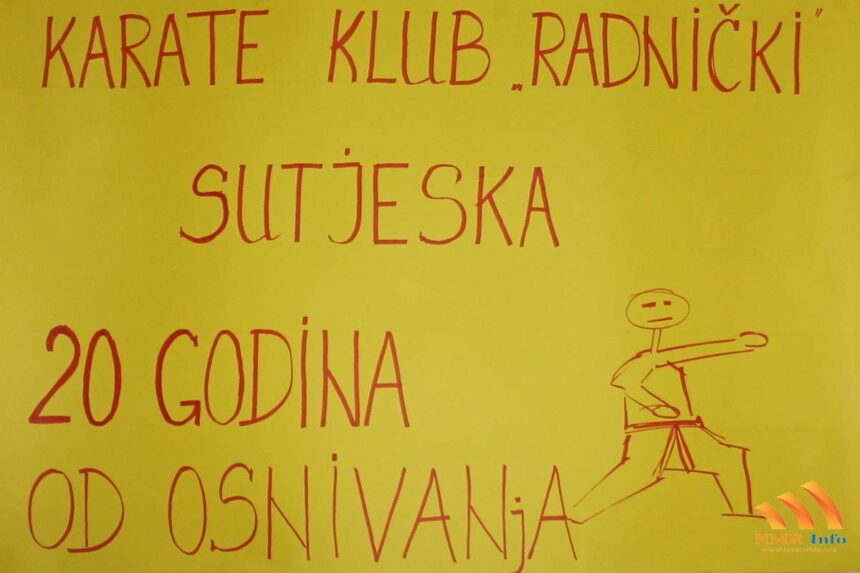 KARATE KLUB „RADNIČKI"
SUTJESKA
20 GODINA
OD OSNIVANjA
NMR Info